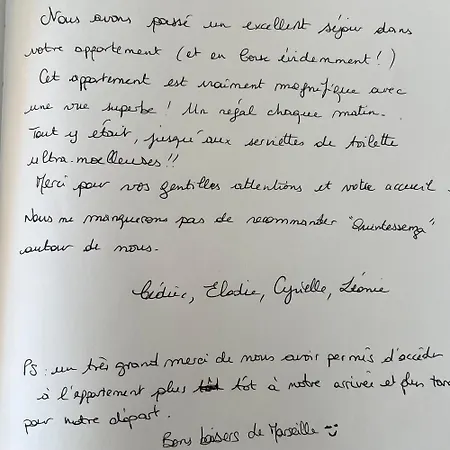 Nous avons passé un excellent séjour dans
votre appartement (et en Corse évidemment !)
Cet appartement est vraiment magnifique avec
une vue superbe ! Un régal chaque matin..
Tout y était, jusqu'aux serviettes de toilette
ultra-moelleuses !!
Merci pour vos gentilles attentions et votre accueil.
Nous ne manquerons pas de recommander "Quintessenza"
autour de nous.
Cédric, Elodie, Cyrielle, Léonie
PS : un très grand merci de nous avoir permis d'accéder
à l'appartement plus tôt à notre arrivée et plus tard
pour notre départ.
Bons baisers de Marseille